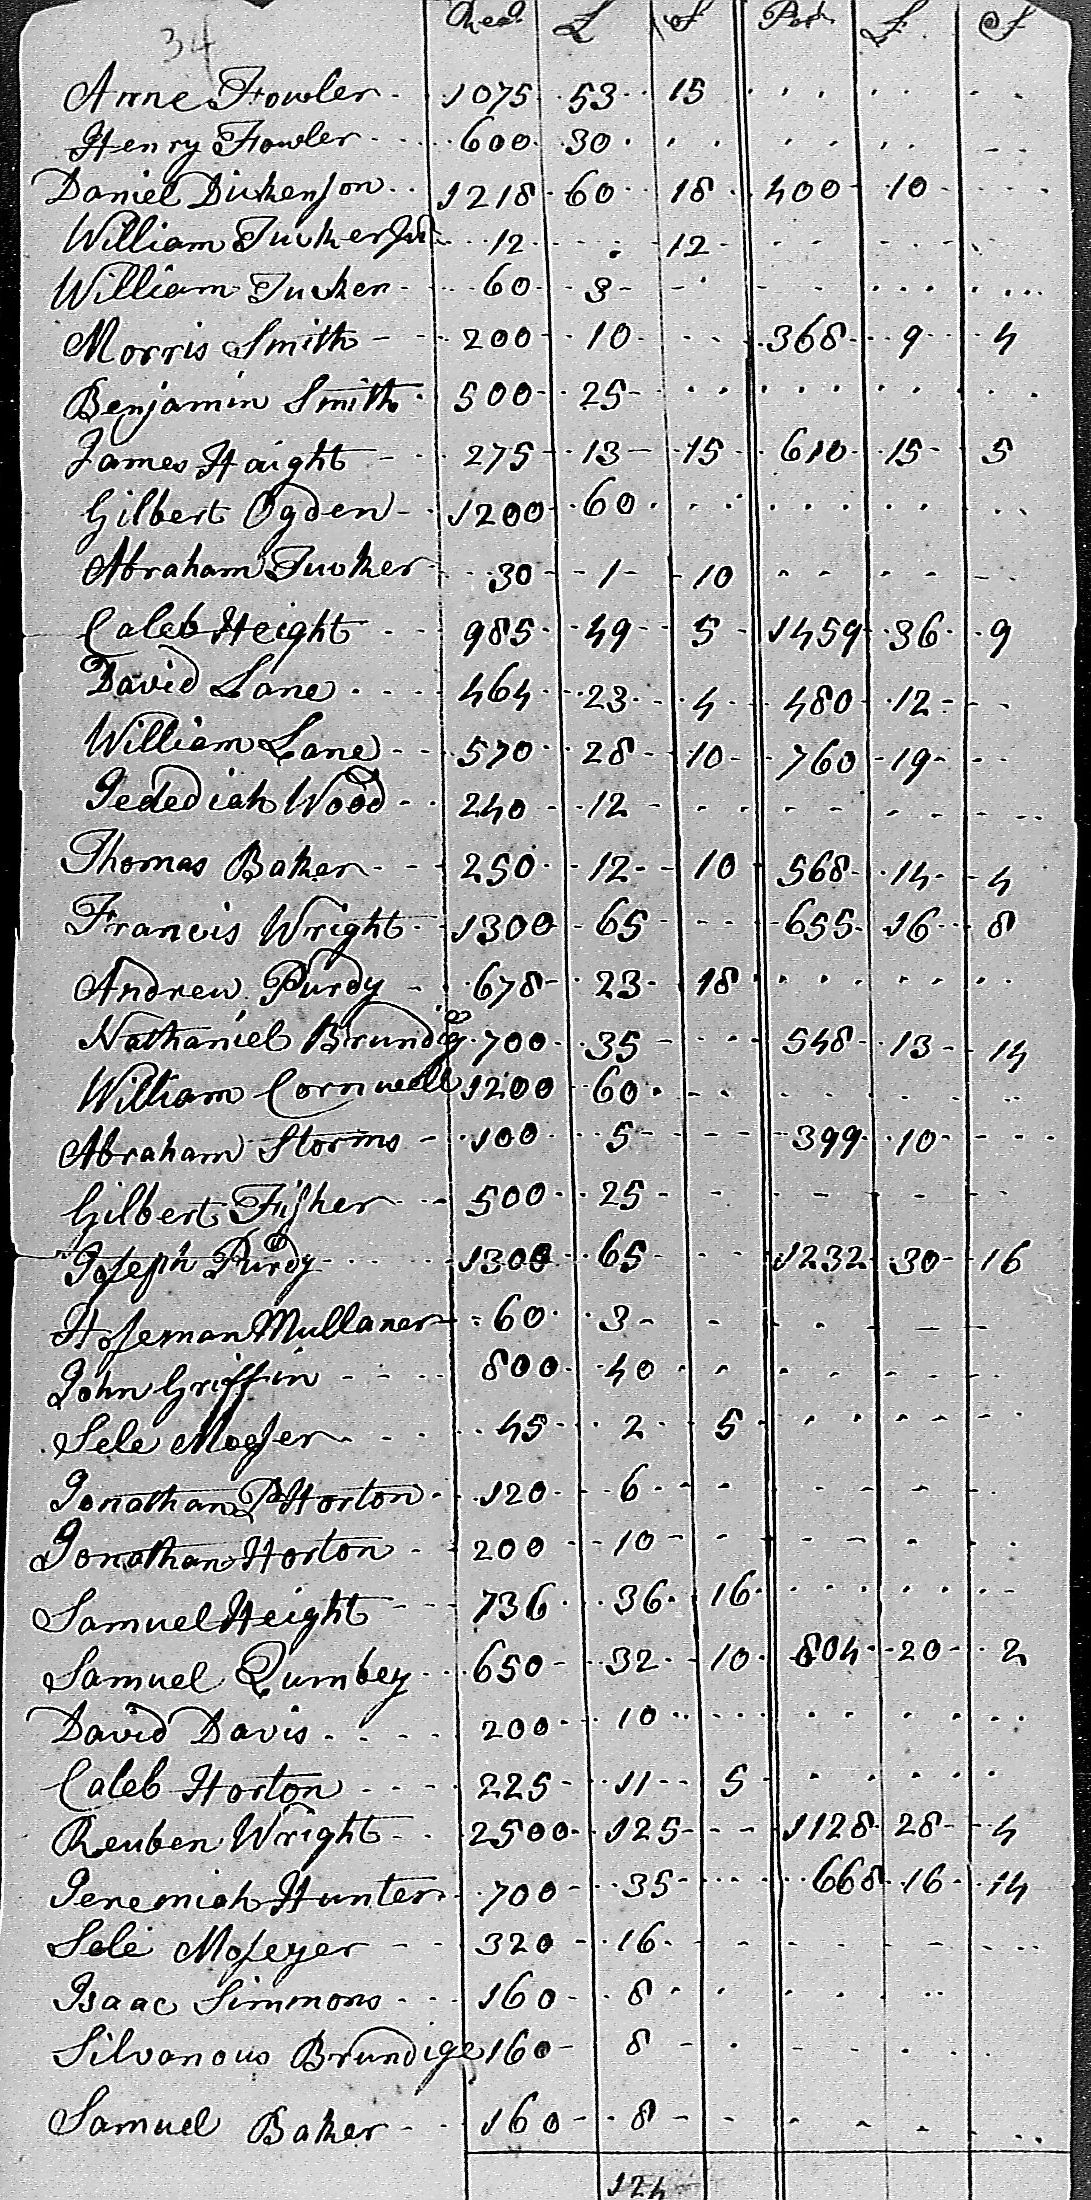 34
Real £ S Per £ S
Anne Fowler 1075 53 15
Henry Fowler 600 30
Daniel Dickenson 1218 60 18 400 10
William Tucker Jur 12 12
William Tucker 60 3
Morris Smith 200 10 368 9 4
Benjamin Smith 500 25
James Haight 275 13 15 610 15 5
Gilbert Ogden 1200 60
Abraham Tucker 30 1 10
Caleb Height 985 49 5 1459 36 9
David Lane 464 23 4 480 12
William Lane 570 28 10 760 19
Jedediah Wood 240 12
Thomas Baker 250 12 10 568 14 4
Francis Wright 1300 65 655 16 8
Andrew Purdy 678 23 18
Nathaniel Brundig 700 35 548 13 14
William Cornwell 1200 60
Abraham Storms 100 5 399 10
Gilbert Fisher 500 25
Joseph Purdy 1300 65 1232 30 16
Hoseman Mullaner 60 3
John Griffin 800 40
Sele 45 2 5
Jonathan P Horton 120 6
Jonathan Horton 200 10
Samuel Height 736 36 16
Samuel Qumbey 650 32 10 804 20 2
David Davis 200 10
Caleb Horton 225 11 5
Reuben Wright 2500 125 1128 28 4
Jeremiah Hunter 700 35 668 16 14
Sele Moseyer 320 16
Isaac Simmons 160 8
Silvanous Brundige 160 8
Samuel Baker 160 8
124